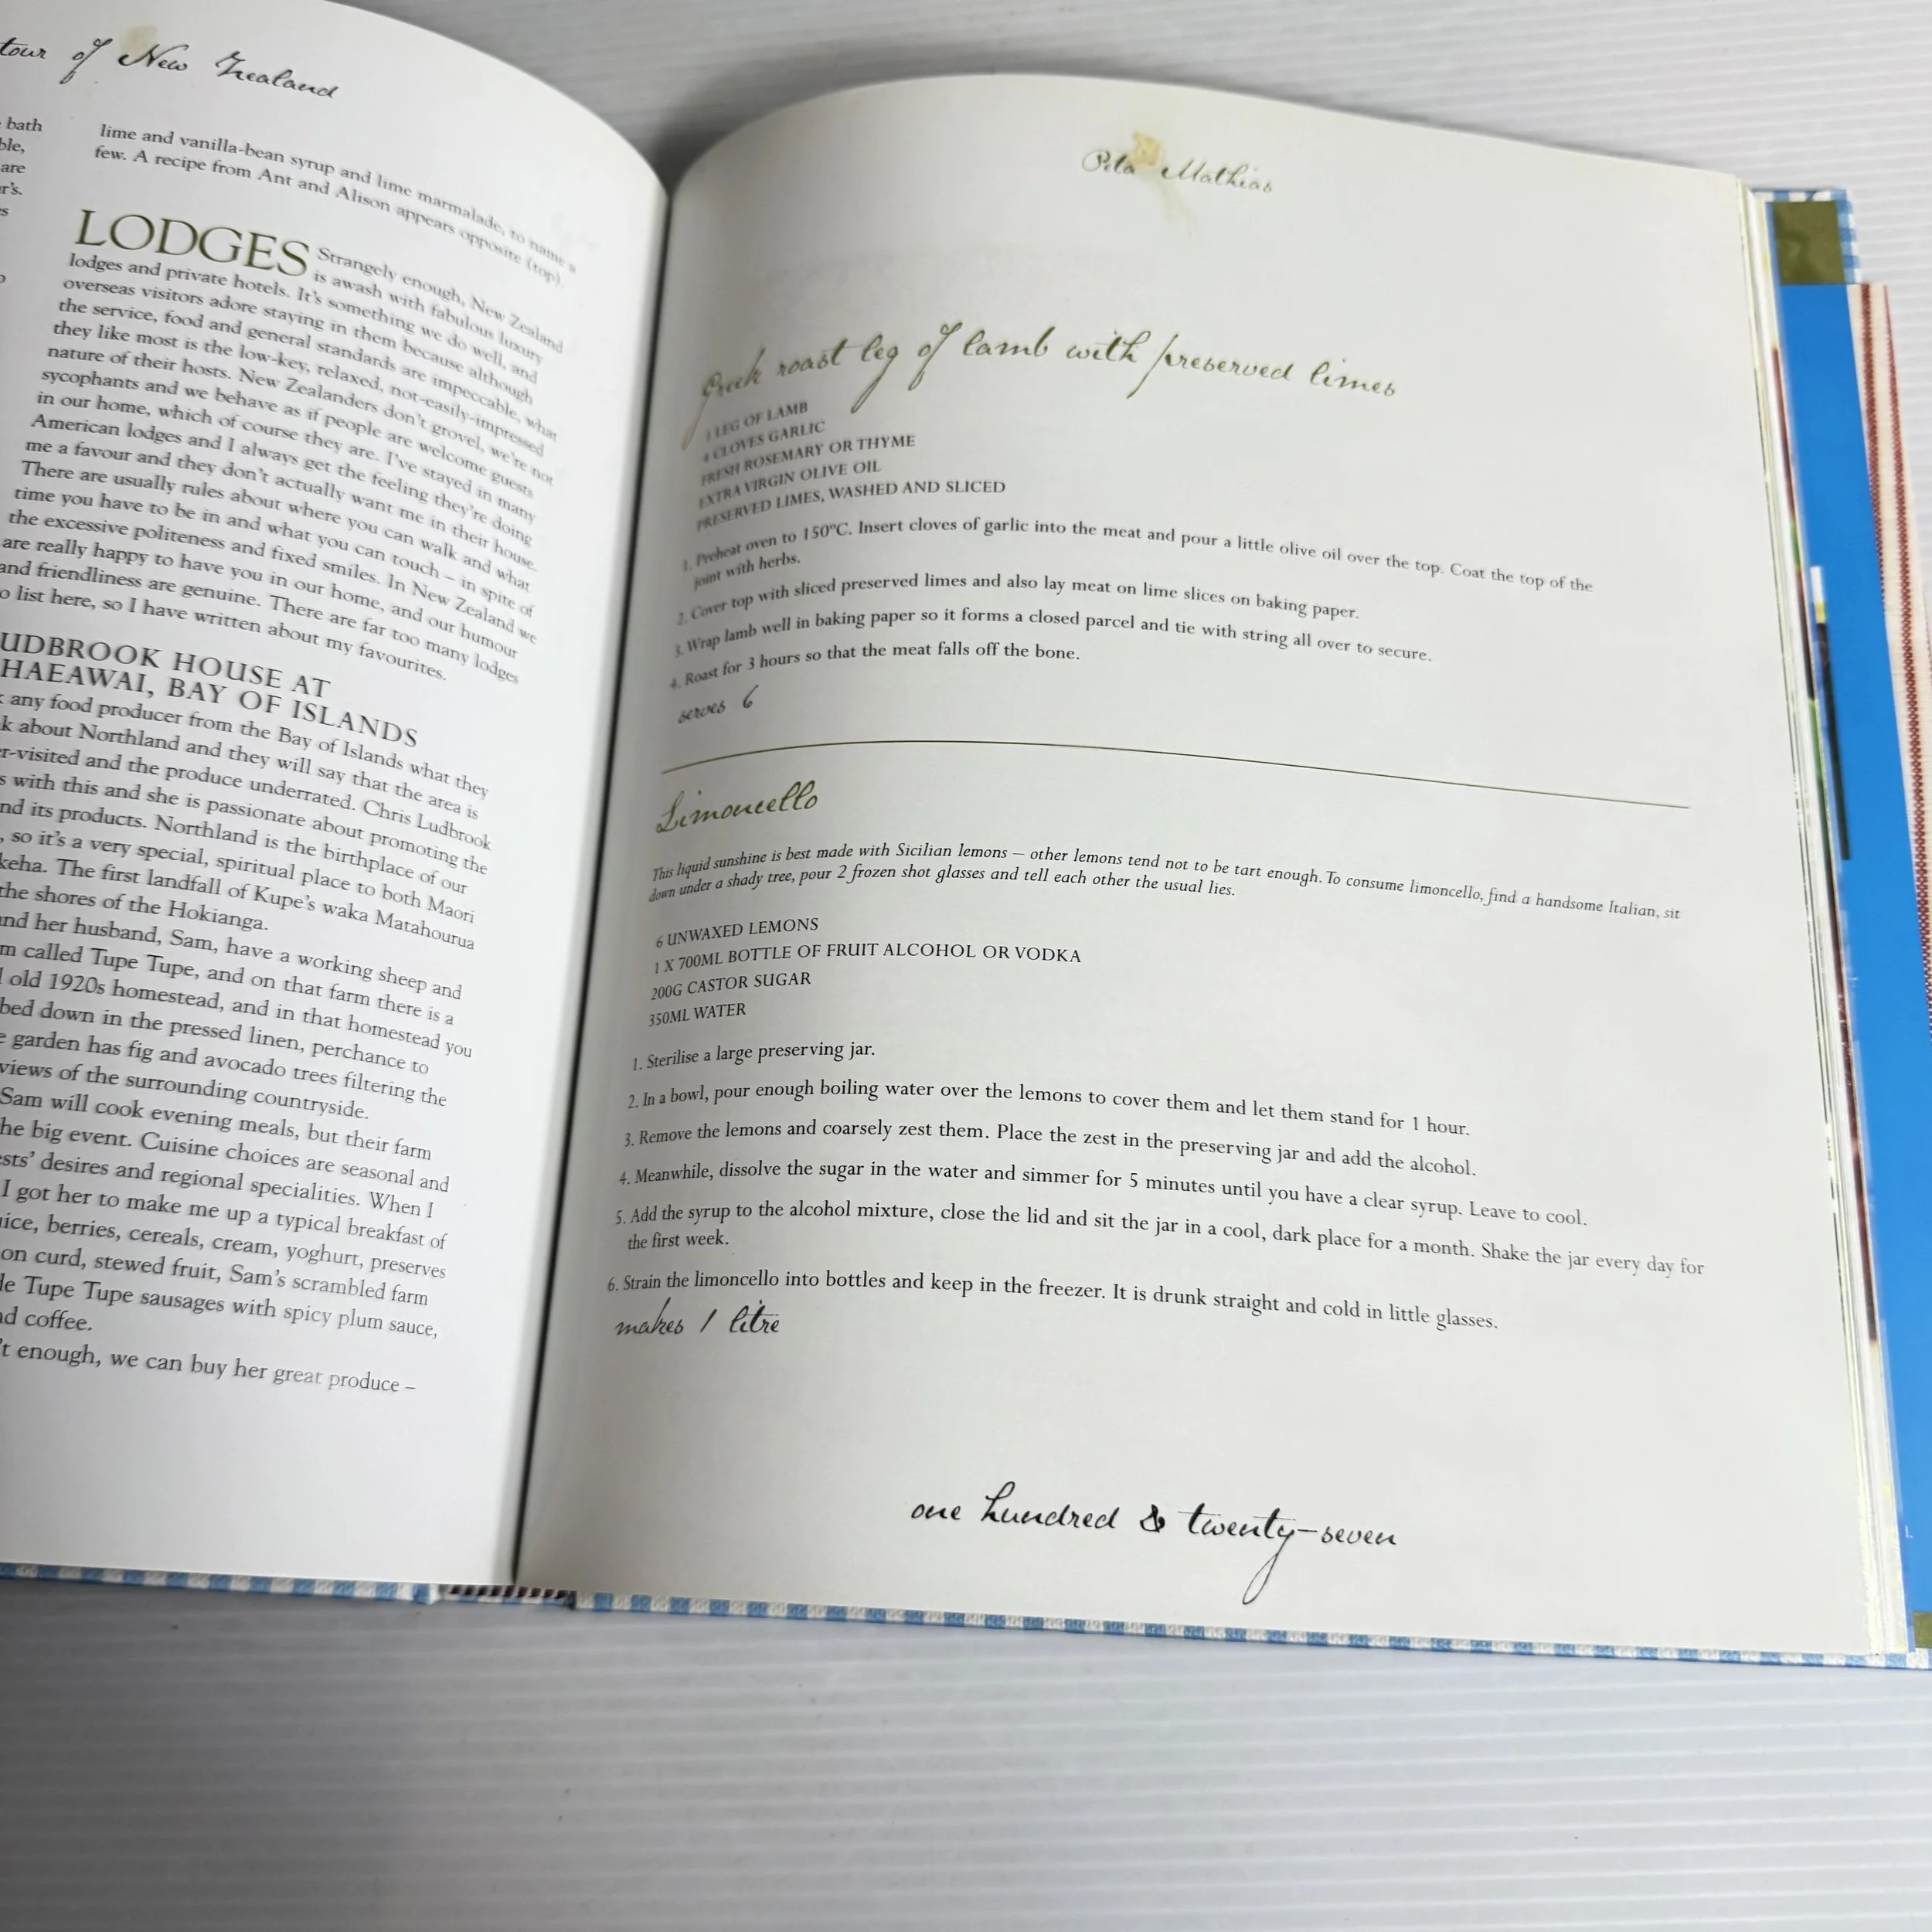 tour of New Zealand
bath
ble,
are
r's.
es
lime and vanilla-bean syrup and lime marmalade, to name a
few. A recipe from Ant and Alison appears opposite (top).
LODGES Strangely enough, New Zealand
is awash with fabulous luxury
lodges and private hotels. It's something we do well, and
overseas visitors adore staying in them because although
the service, food and general standards are impeccable, what
they like most is the low-key, relaxed, not-easily-impressed
nature of their hosts. New Zealanders don't grovel, we're not
sycophants and we behave as if people are welcome guests
in our home, which of course they are. I've stayed in many
American lodges and I always get the feeling they're doing
me a favour and they don't actually want me in their house.
There are usually rules about where you can walk and what
time you have to be in and what you can touch – in spite of
the excessive politeness and fixed smiles. In New Zealand we
are really happy to have you in our home, and our humour
and friendliness are genuine. There are far too many lodges
o list here, so I have written about my favourites.
UDBROOK HOUSE AT
HAEAWAI, BAY OF ISLANDS
k any food producer from the Bay of Islands what they
k about Northland and they will say that the area is
r-visited and the produce underrated. Chris Ludbrook
s with this and she is passionate about promoting the
nd its products. Northland is the birthplace of our
, so it's a very special, spiritual place to both Maori
keha. The first landfall of Kupe's waka Matahourua
the shores of the Hokianga.
and her husband, Sam, have a working sheep and
m called Tupe Tupe, and on that farm there is a
l old 1920s homestead, and in that homestead you
bed down in the pressed linen, perchance to
e garden has fig and avocado trees filtering the
views of the surrounding countryside.
Sam will cook evening meals, but their farm
he big event. Cuisine choices are seasonal and
ests' desires and regional specialities. When I
I got her to make me up a typical breakfast of
uice, berries, cereals, cream, yoghurt, preserves
on curd, stewed fruit, Sam's scrambled farm
le Tupe Tupe sausages with spicy plum sauce,
nd coffee.
't enough, we can buy her great produce –
Peta Mathias
Greek roast leg of lamb with preserved limes
1 LEG OF LAMB
4 CLOVES GARLIC
FRESH ROSEMARY OR THYME
EXTRA VIRGIN OLIVE OIL
PRESERVED LIMES, WASHED AND SLICED
1. Preheat oven to 150°C. Insert cloves of garlic into the meat and pour a little olive oil over the top. Coat the top of the
joint with herbs.
2. Cover top with sliced preserved limes and also lay meat on lime slices on baking paper.
3. Wrap lamb well in baking paper so it forms a closed parcel and tie with string all over to secure.
4. Roast for 3 hours so that the meat falls off the bone.
serves 6
Limoncello
This liquid sunshine is best made with Sicilian lemons – other lemons tend not to be tart enough. To consume limoncello, find a handsome Italian, sit
down under a shady tree, pour 2 frozen shot glasses and tell each other the usual lies.
6 UNWAXED LEMONS
1 X 700ML BOTTLE OF FRUIT ALCOHOL OR VODKA
200G CASTOR SUGAR
350ML WATER
1. Sterilise a large preserving jar.
2. In a bowl, pour enough boiling water over the lemons to cover them and let them stand for 1 hour.
3. Remove the lemons and coarsely zest them. Place the zest in the preserving jar and add the alcohol.
4. Meanwhile, dissolve the sugar in the water and simmer for 5 minutes until you have a clear syrup. Leave to cool.
5. Add the syrup to the alcohol mixture, close the lid and sit the jar in a cool, dark place for a month. Shake the jar every day for
the first week.
6. Strain the limoncello into bottles and keep in the freezer. It is drunk straight and cold in little glasses.
makes 1 litre
one hundred & twenty-seven